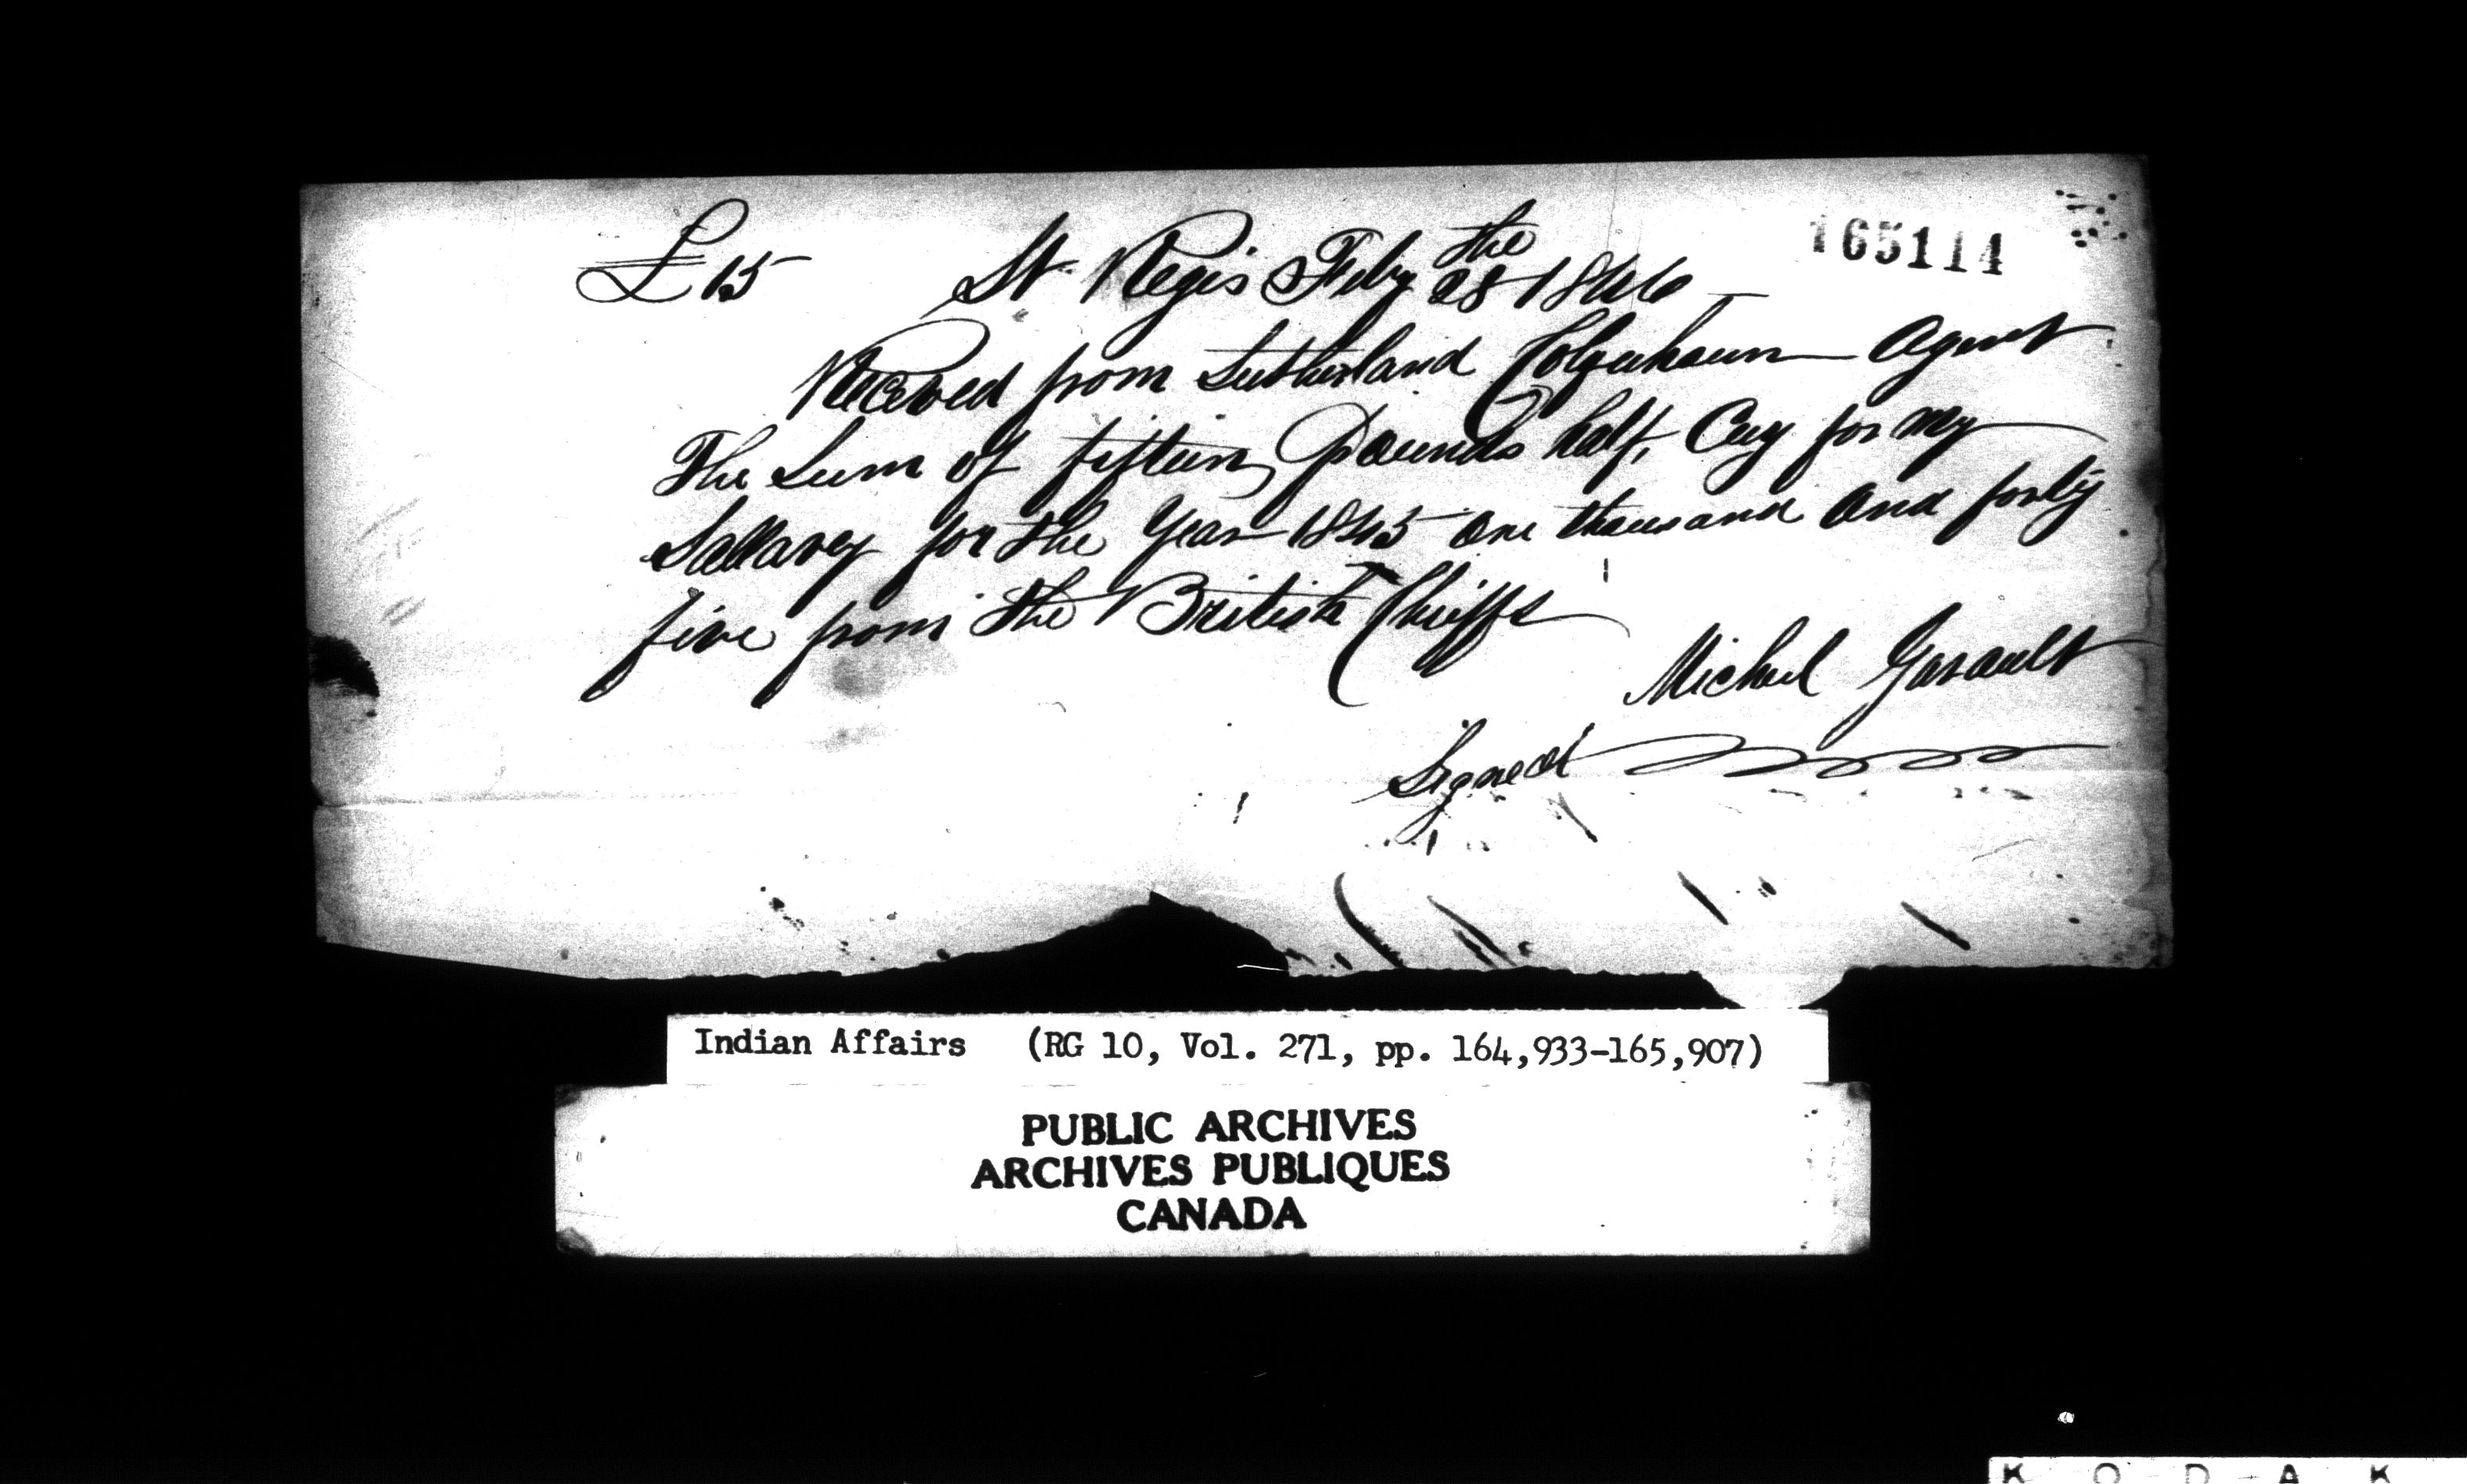 165114
£15 St. Regis Feby the 28 1846
Received from Sutherland Colquhoun Agent
The Sum of fifteen Pounds half, Cuy for my
Sallarey for the Year 1845 One thousand and forty
five from the British Chieffs
Michael Garault
Signed
Indian Affairs (RG 10, Vol. 271, pp. 164,933-165,907)
PUBLIC ARCHIVES
ARCHIVES PUBLIQUES
CANADA
K O D A K